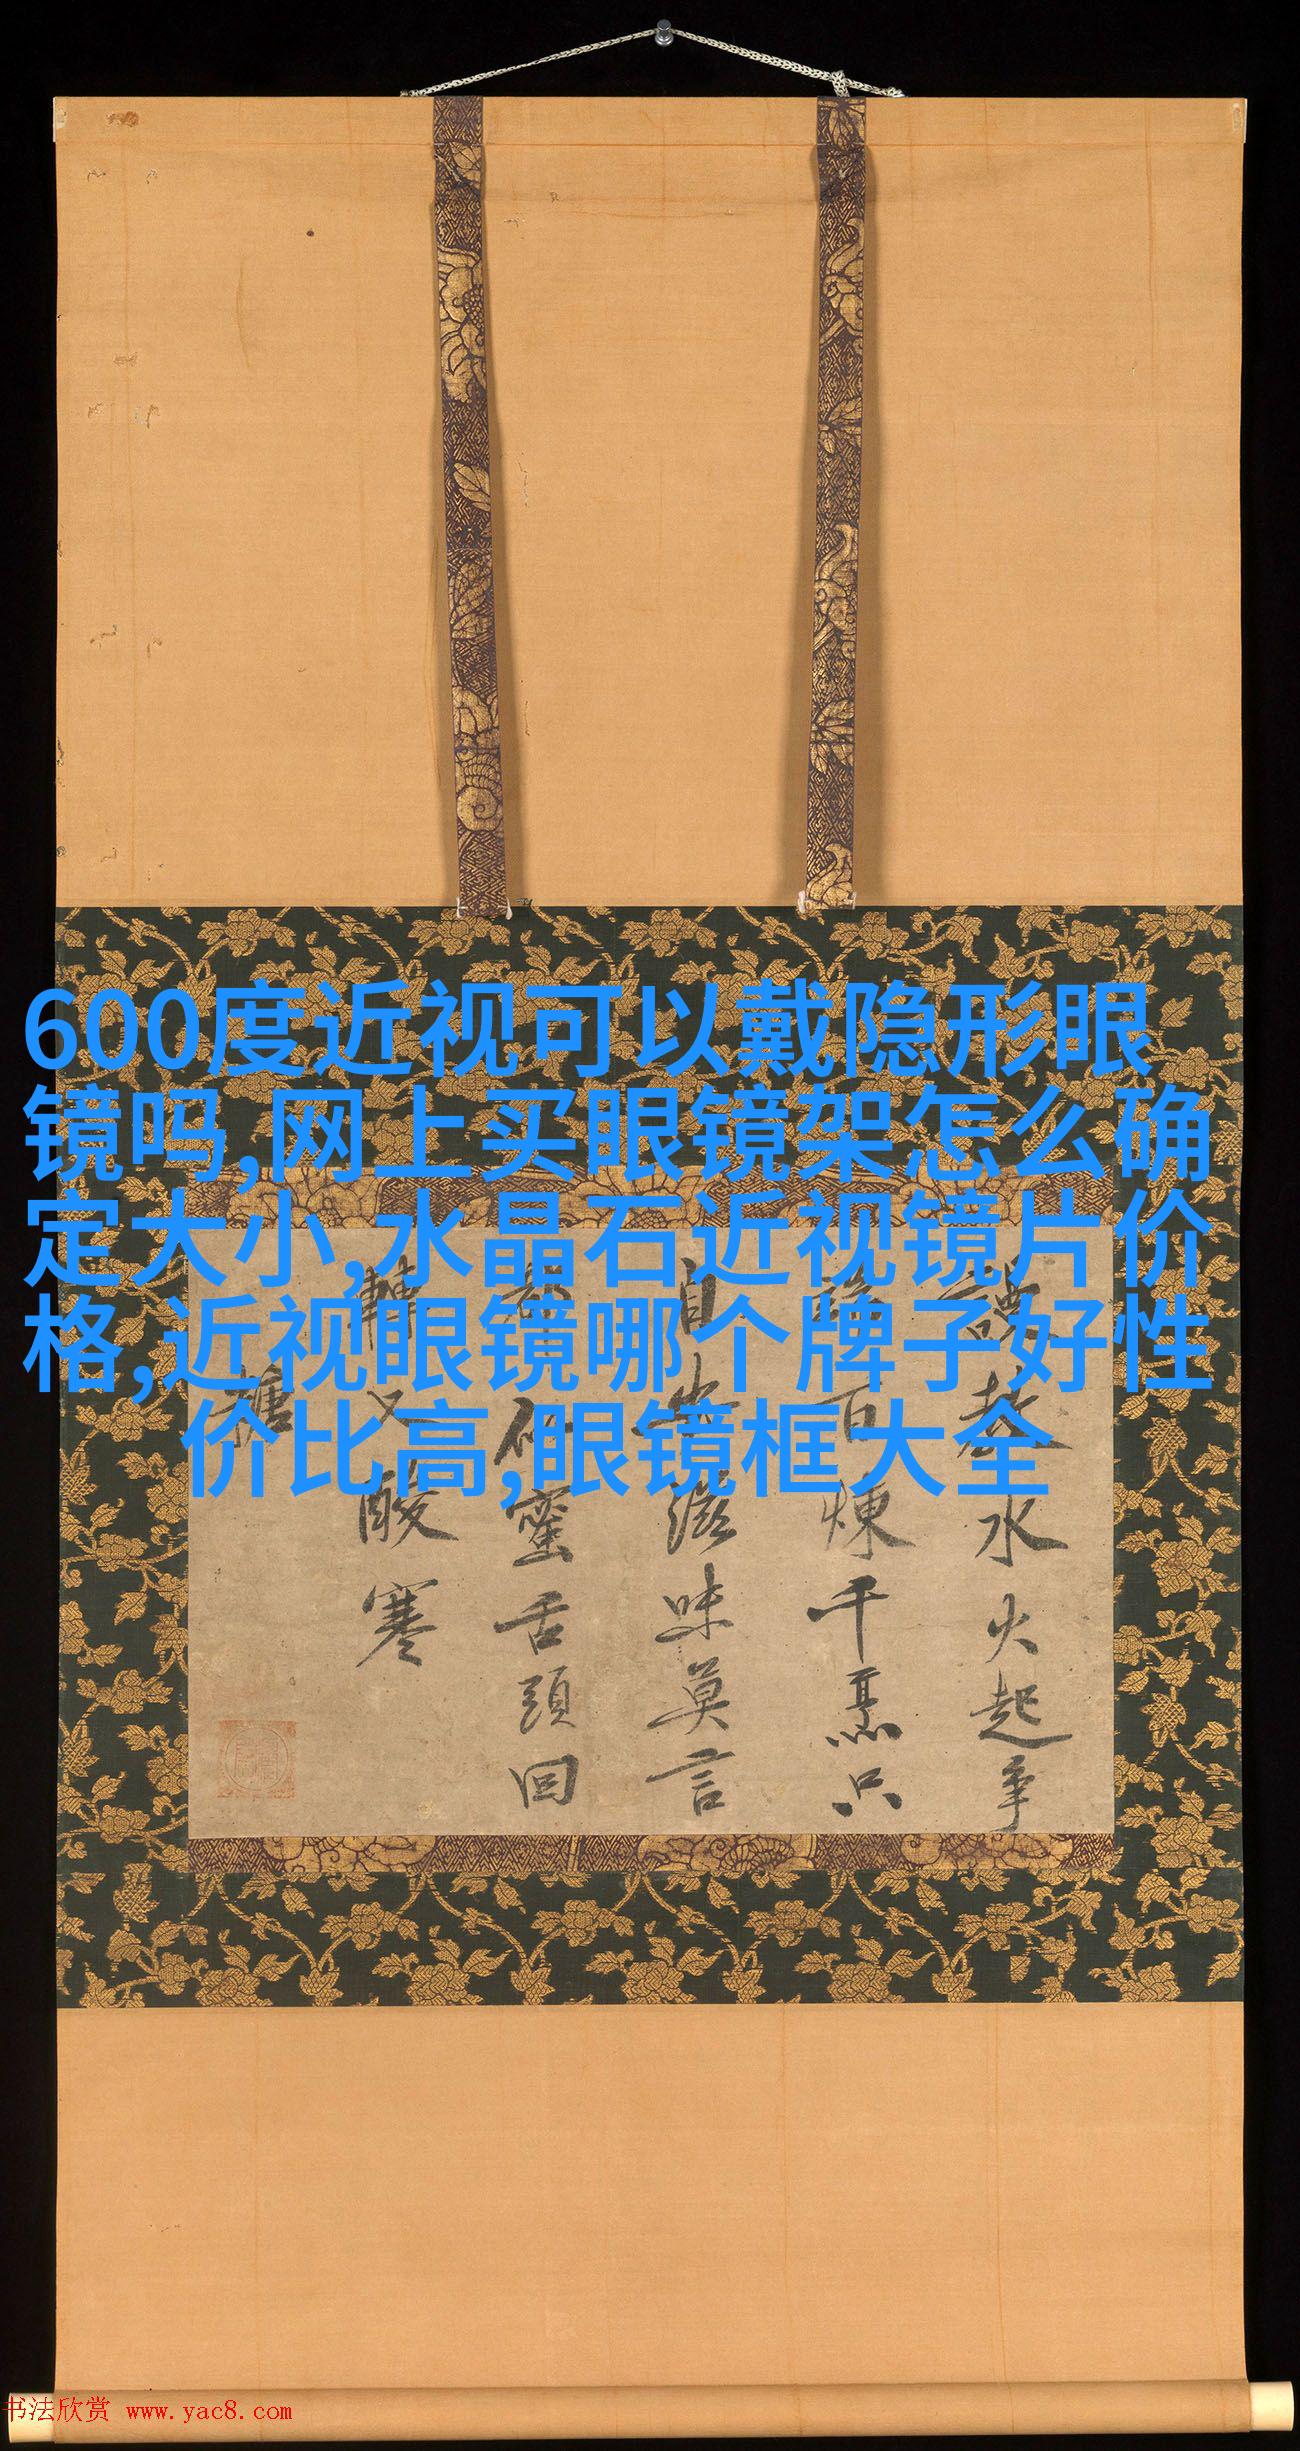 600度近视可以戴隐形眼
镜吗,网上买眼镜架怎么确
定大小,水晶石近视镜片价
格,近视眼镜哪个牌子好性
价比高,眼镜框大全
水火起争
百煉千烹只
滋味莫言
似蜜舌頭回
轉又酸寒
糖
书法欣赏 www.yac8.com